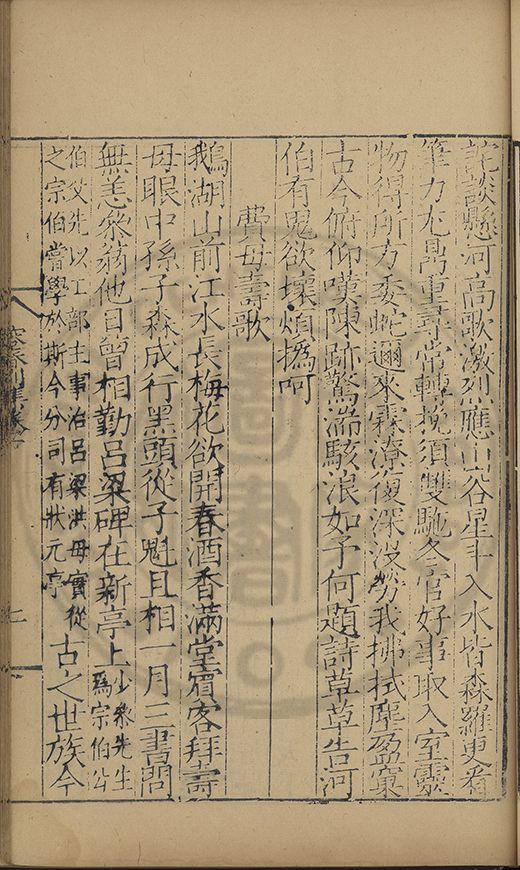 詫談懸河高歌激烈應山谷星斗入水皆森羅更看
筆力尤馮重尋常轉挽須雙馳冬官好事取入室靈
物得所方委蛇邇來霖潦復深沒勞我拂拭塵盈窠
古今俯仰嘆陳跡驚湍駭浪如予何題詩草草告河
伯有鬼欲壞煩撝呵
費母壽歌
鵝湖山前江水長梅花欲開春酒香滿堂賓客拜壽
母眼中孫子森成行黑頭從子魁且相一月三書問
無恙衆翁他日曾相勤呂梁碑在新亭上少參先生爲宗伯公
伯父先以工部主事治呂梁洪母實從之宗伯嘗學於斯今分司有狀元亭古之世族今
七